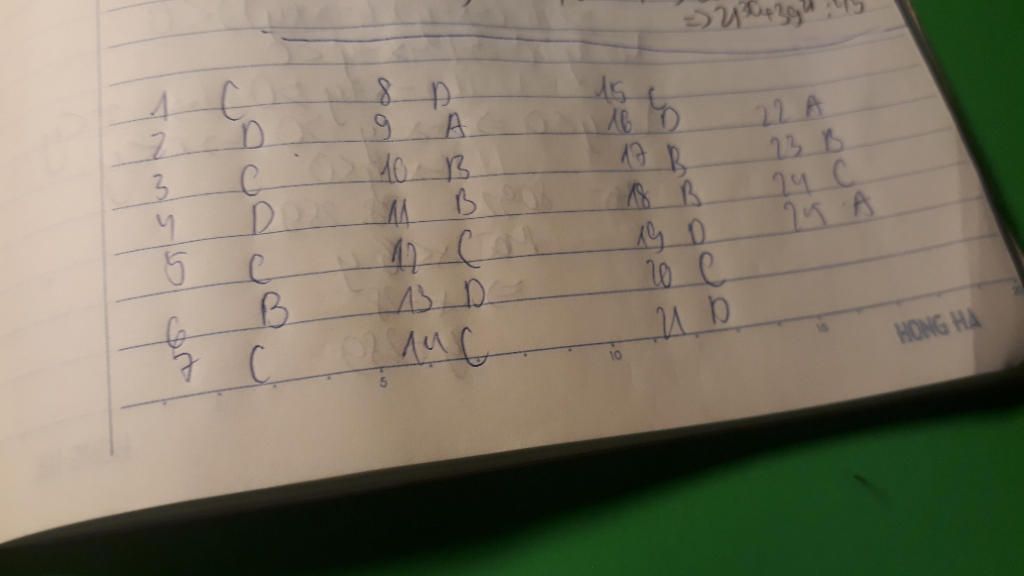 1 C 8 D 15 C 22 A
2 D 9 A 16 D 23 B
3 C 10 B 17 B 24 C
4 D 11 B 18 B 25 A
5 C 12 C 19 D
6 B 13 D 20 C
7 C 14 C 21 D
5 10 15 20
HONG HA